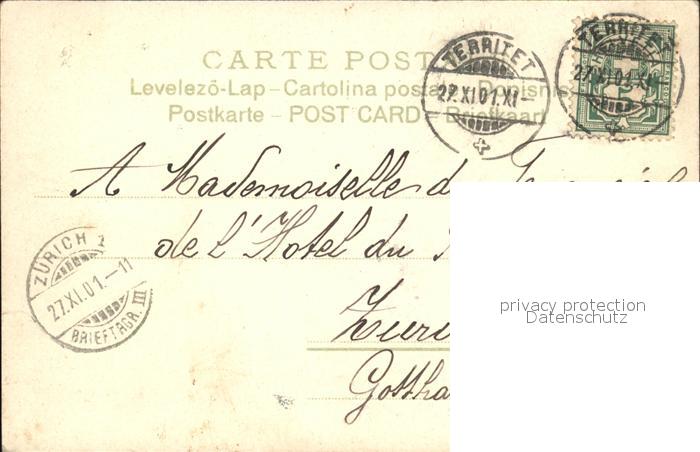 CARTE POST
Levelezō-Lap – Cartolina posta Dopisnis
Postkarte – POST CARD – Briefkaart
TERRITET
27.XI.01.XI–
TERRITET
27.XI.01.XI–
A Mademoiselle de
de l'Hotel du
ZÜRICH 1
27.XI.01.–11
BRIEFTRGR. III
Zuri
Gottha
privacy protection
Datenschutz